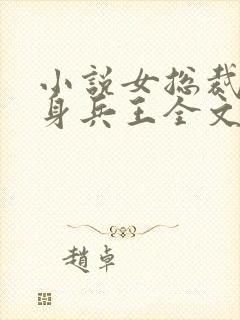 小說女总裁
身兵王全文
趙卓